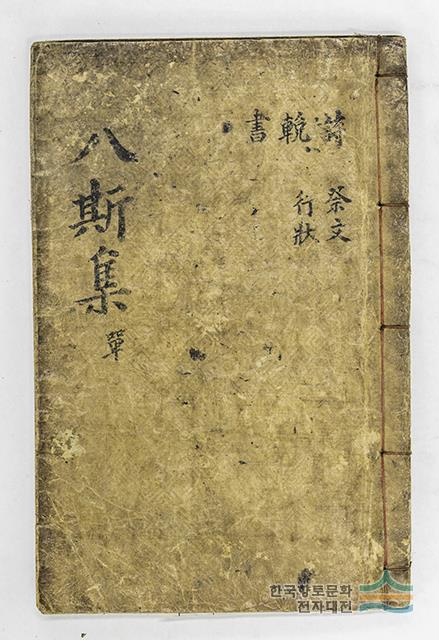 祭文
輓 行狀
書
八斯集 單
한국향토문화
전자대전